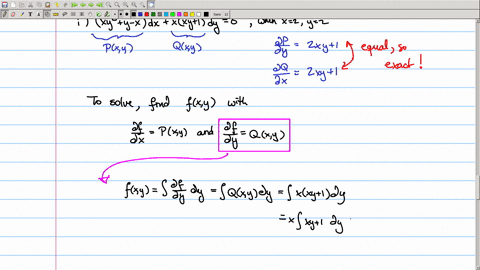 i) (xy²+y-x)dx + x(xy+1)dy = 0 , when x=2, y=2
P(x,y) Q(x,y)
∂P/∂y = 2xy+1
∂Q/∂x = 2xy+1
equal, so
exact!
To solve, find f(x,y) with
∂f/∂x = P(x,y) and ∂f/∂y = Q(x,y)
f(x,y) = ∫ ∂f/∂y dy = ∫Q(x,y)dy = ∫ x(xy+1)dy
= x∫ xy+1 dy